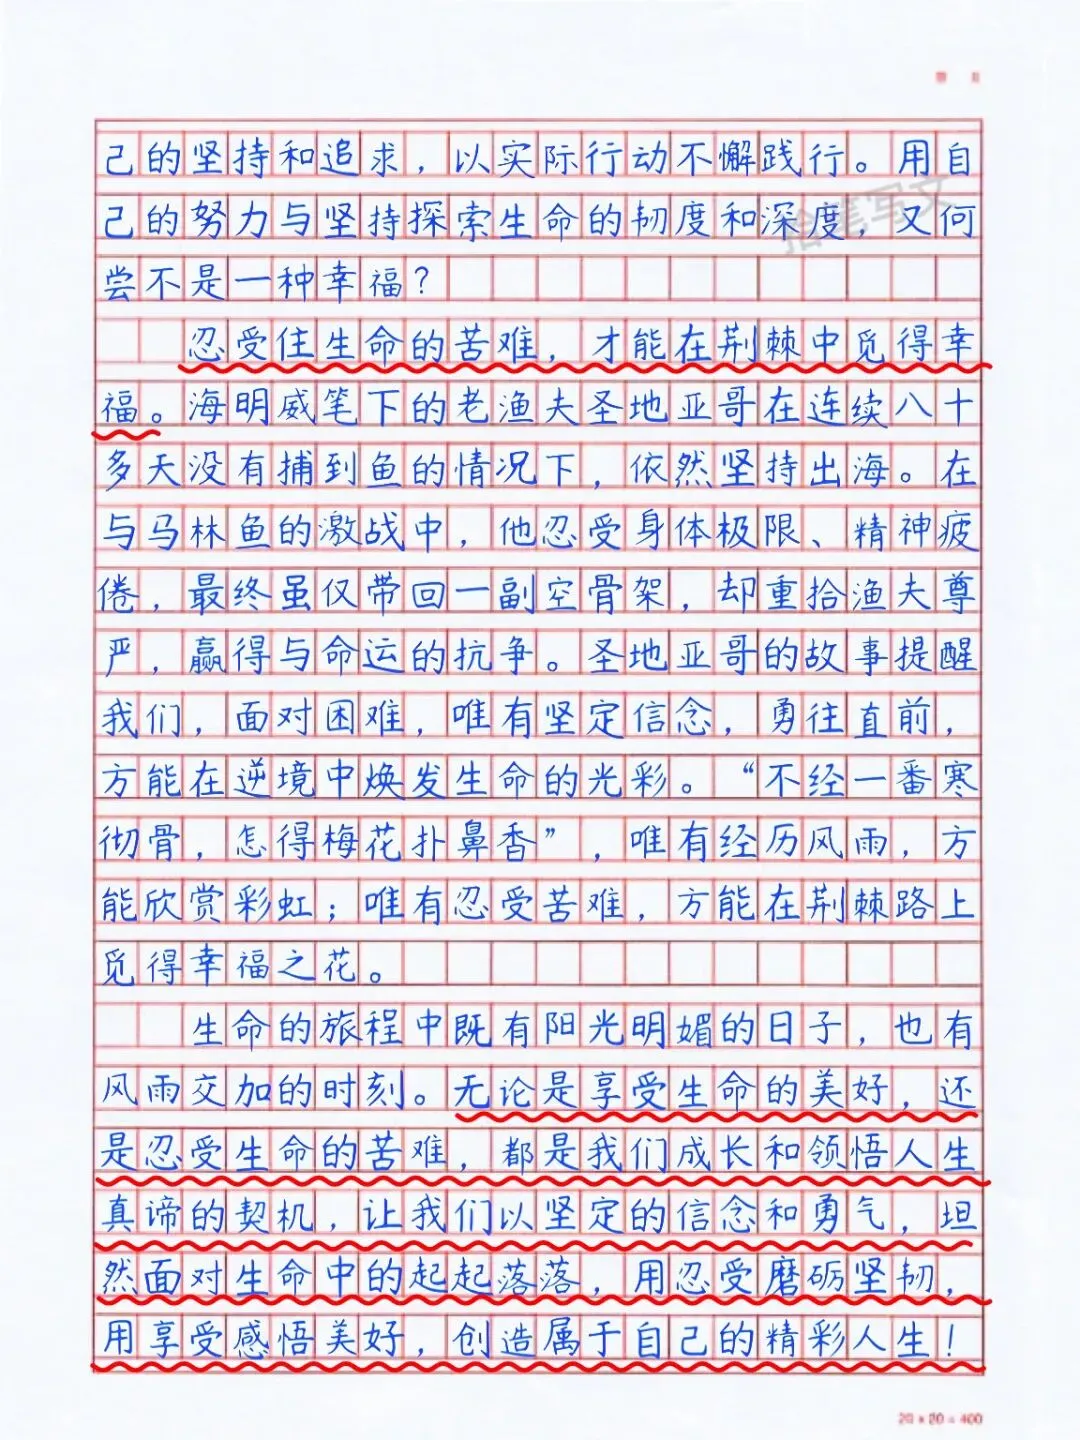 己的坚持和追求，以实际行动不懈践行。用自
己的努力与坚持探索生命的韧度和深度，又何
尝不是一种幸福？
忍受住生命的苦难，才能在荆棘中觅得幸
福。海明威笔下的老渔夫圣地亚哥在连续八十
多天没有捕到鱼的情况下，依然坚持出海。在
与马林鱼的激战中，他忍受身体极限、精神疲
倦，最终虽仅带回一副空骨架，却重拾渔夫尊
严，赢得与命运的抗争。圣地亚哥的故事提醒
我们，面对困难，唯有坚定信念，勇往直前，
方能在逆境中焕发生命的光彩。“不经一番寒
彻骨，怎得梅花扑鼻香”，唯有经历风雨，方
能欣赏彩虹；唯有忍受苦难，方能在荆棘路上
觅得幸福之花。
生命的旅程中既有阳光明媚的日子，也有
风雨交加的时刻。无论是享受生命的美好，还
是忍受生命的苦难，都是我们成长和领悟人生
真谛的契机，让我们以坚定的信念和勇气，坦
然面对生命中的起起落落，用忍受磨砺坚韧，
用享受感悟美好，创造属于自己的精彩人生！
拾笔写文
20×20=400